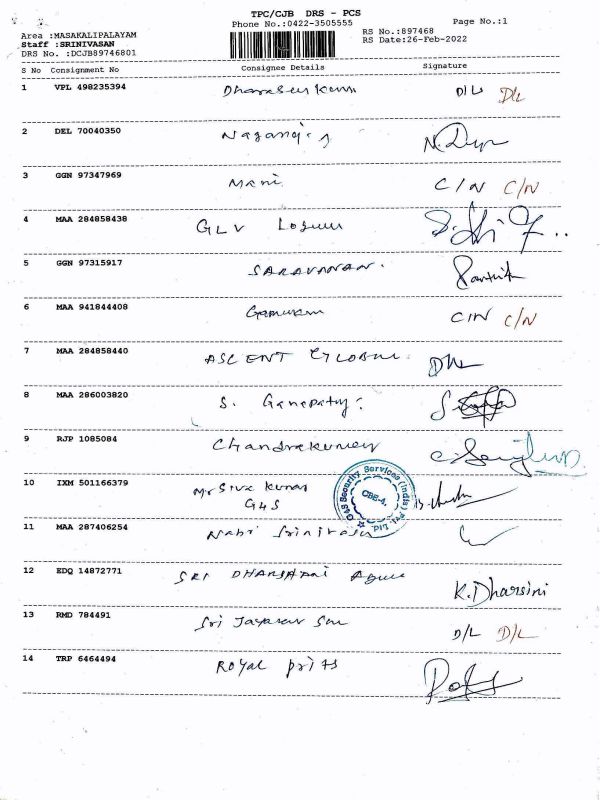 TPC/CJB DRS - PCS
Phone No.:0422-3505555
Page No.:1
Area :MASAKALIPALAYAM
Staff :SRINIVASAN
DRS No. :DCJB89746801
RS No.:897468
RS Date:26-Feb-2022
S No Consignment No Consignee Details Signature
1 VPL 498235394 D/L D/L
2 DEL 70040350
3 GGN 97347969 Mani C/N C/N
4 MAA 284858438 GLV
5 GGN 97315917 SARAVANAN.
6 MAA 941844408 C/N C/N
7 MAA 284858440 ASCENT
8 MAA 286003820 S. Ganapathy
9 RJP 1085084 Chandrakumar
10 IXM 501166379 Mr Siva Kumar
G4S
G4S Security Services (India) Pvt. Ltd.
CBE-4.
11 MAA 287406254 Srinivasan
12 EDQ 14872771 SRI K.Dharsini
13 RMD 784491 Sri D/L D/L
14 TRP 6464494 Royal prits